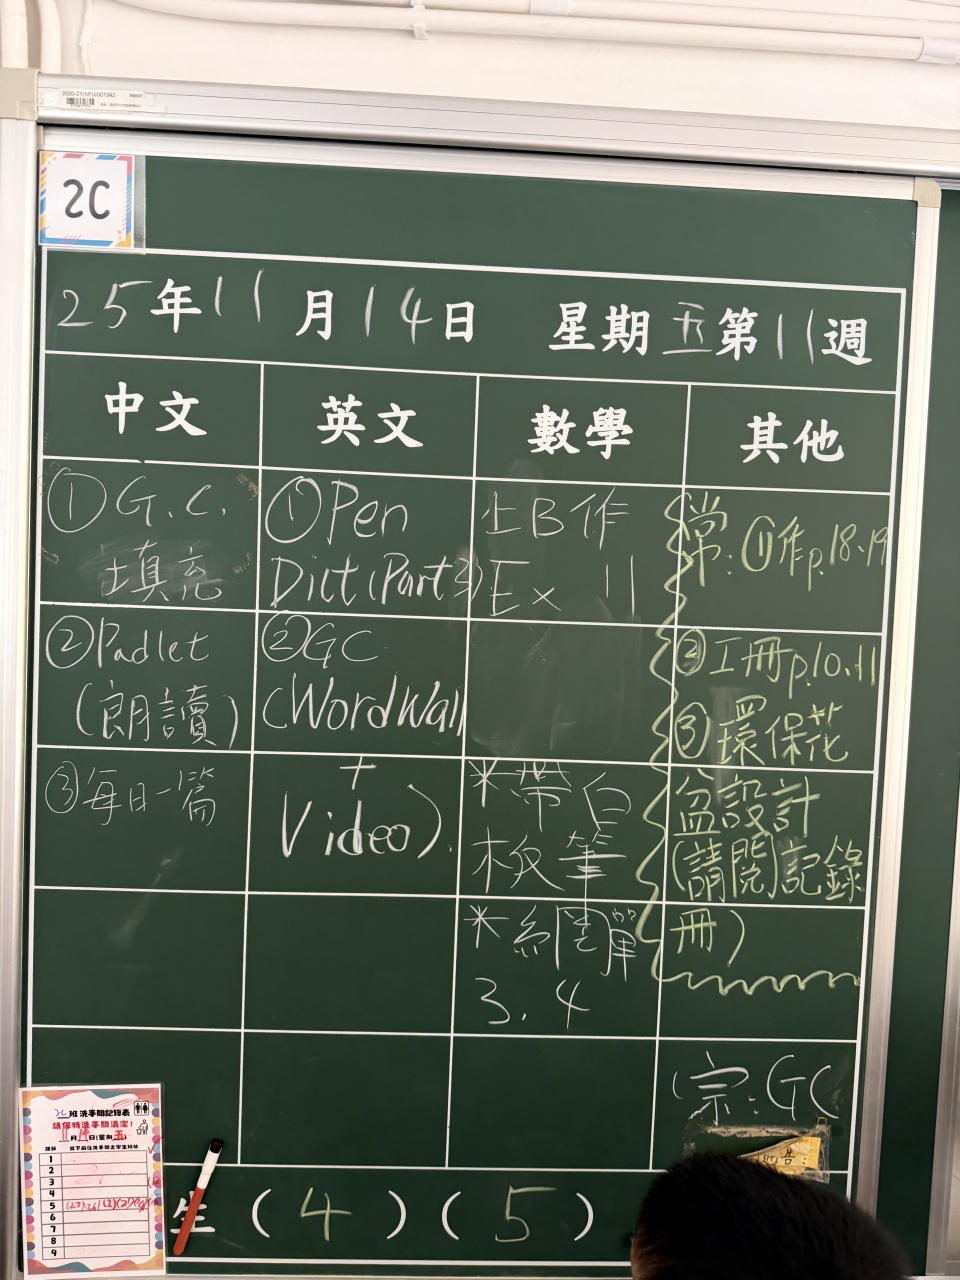 2020-21/1/FU/001342
2C
25年11月14日 星期五第11週
中文
英文
數學
其他
①G.C.
填充
②Padlet
(朗讀)
③每日一篇
①Pen
Dict(Part 3)
②GC
(WordWall
+
Video).
上B作
Ex 11
*帶白
板筆
*網單
3.4
常:①作p.18.19
②工冊p.10.11
③環保花
盆設計
(請閱記錄
冊)
宗:GC
生(4)(5)
2C班洗手間記錄表
請保持洗手間清潔!
11月14日(星期五)
1
2
3
4
5
6
7
8
9